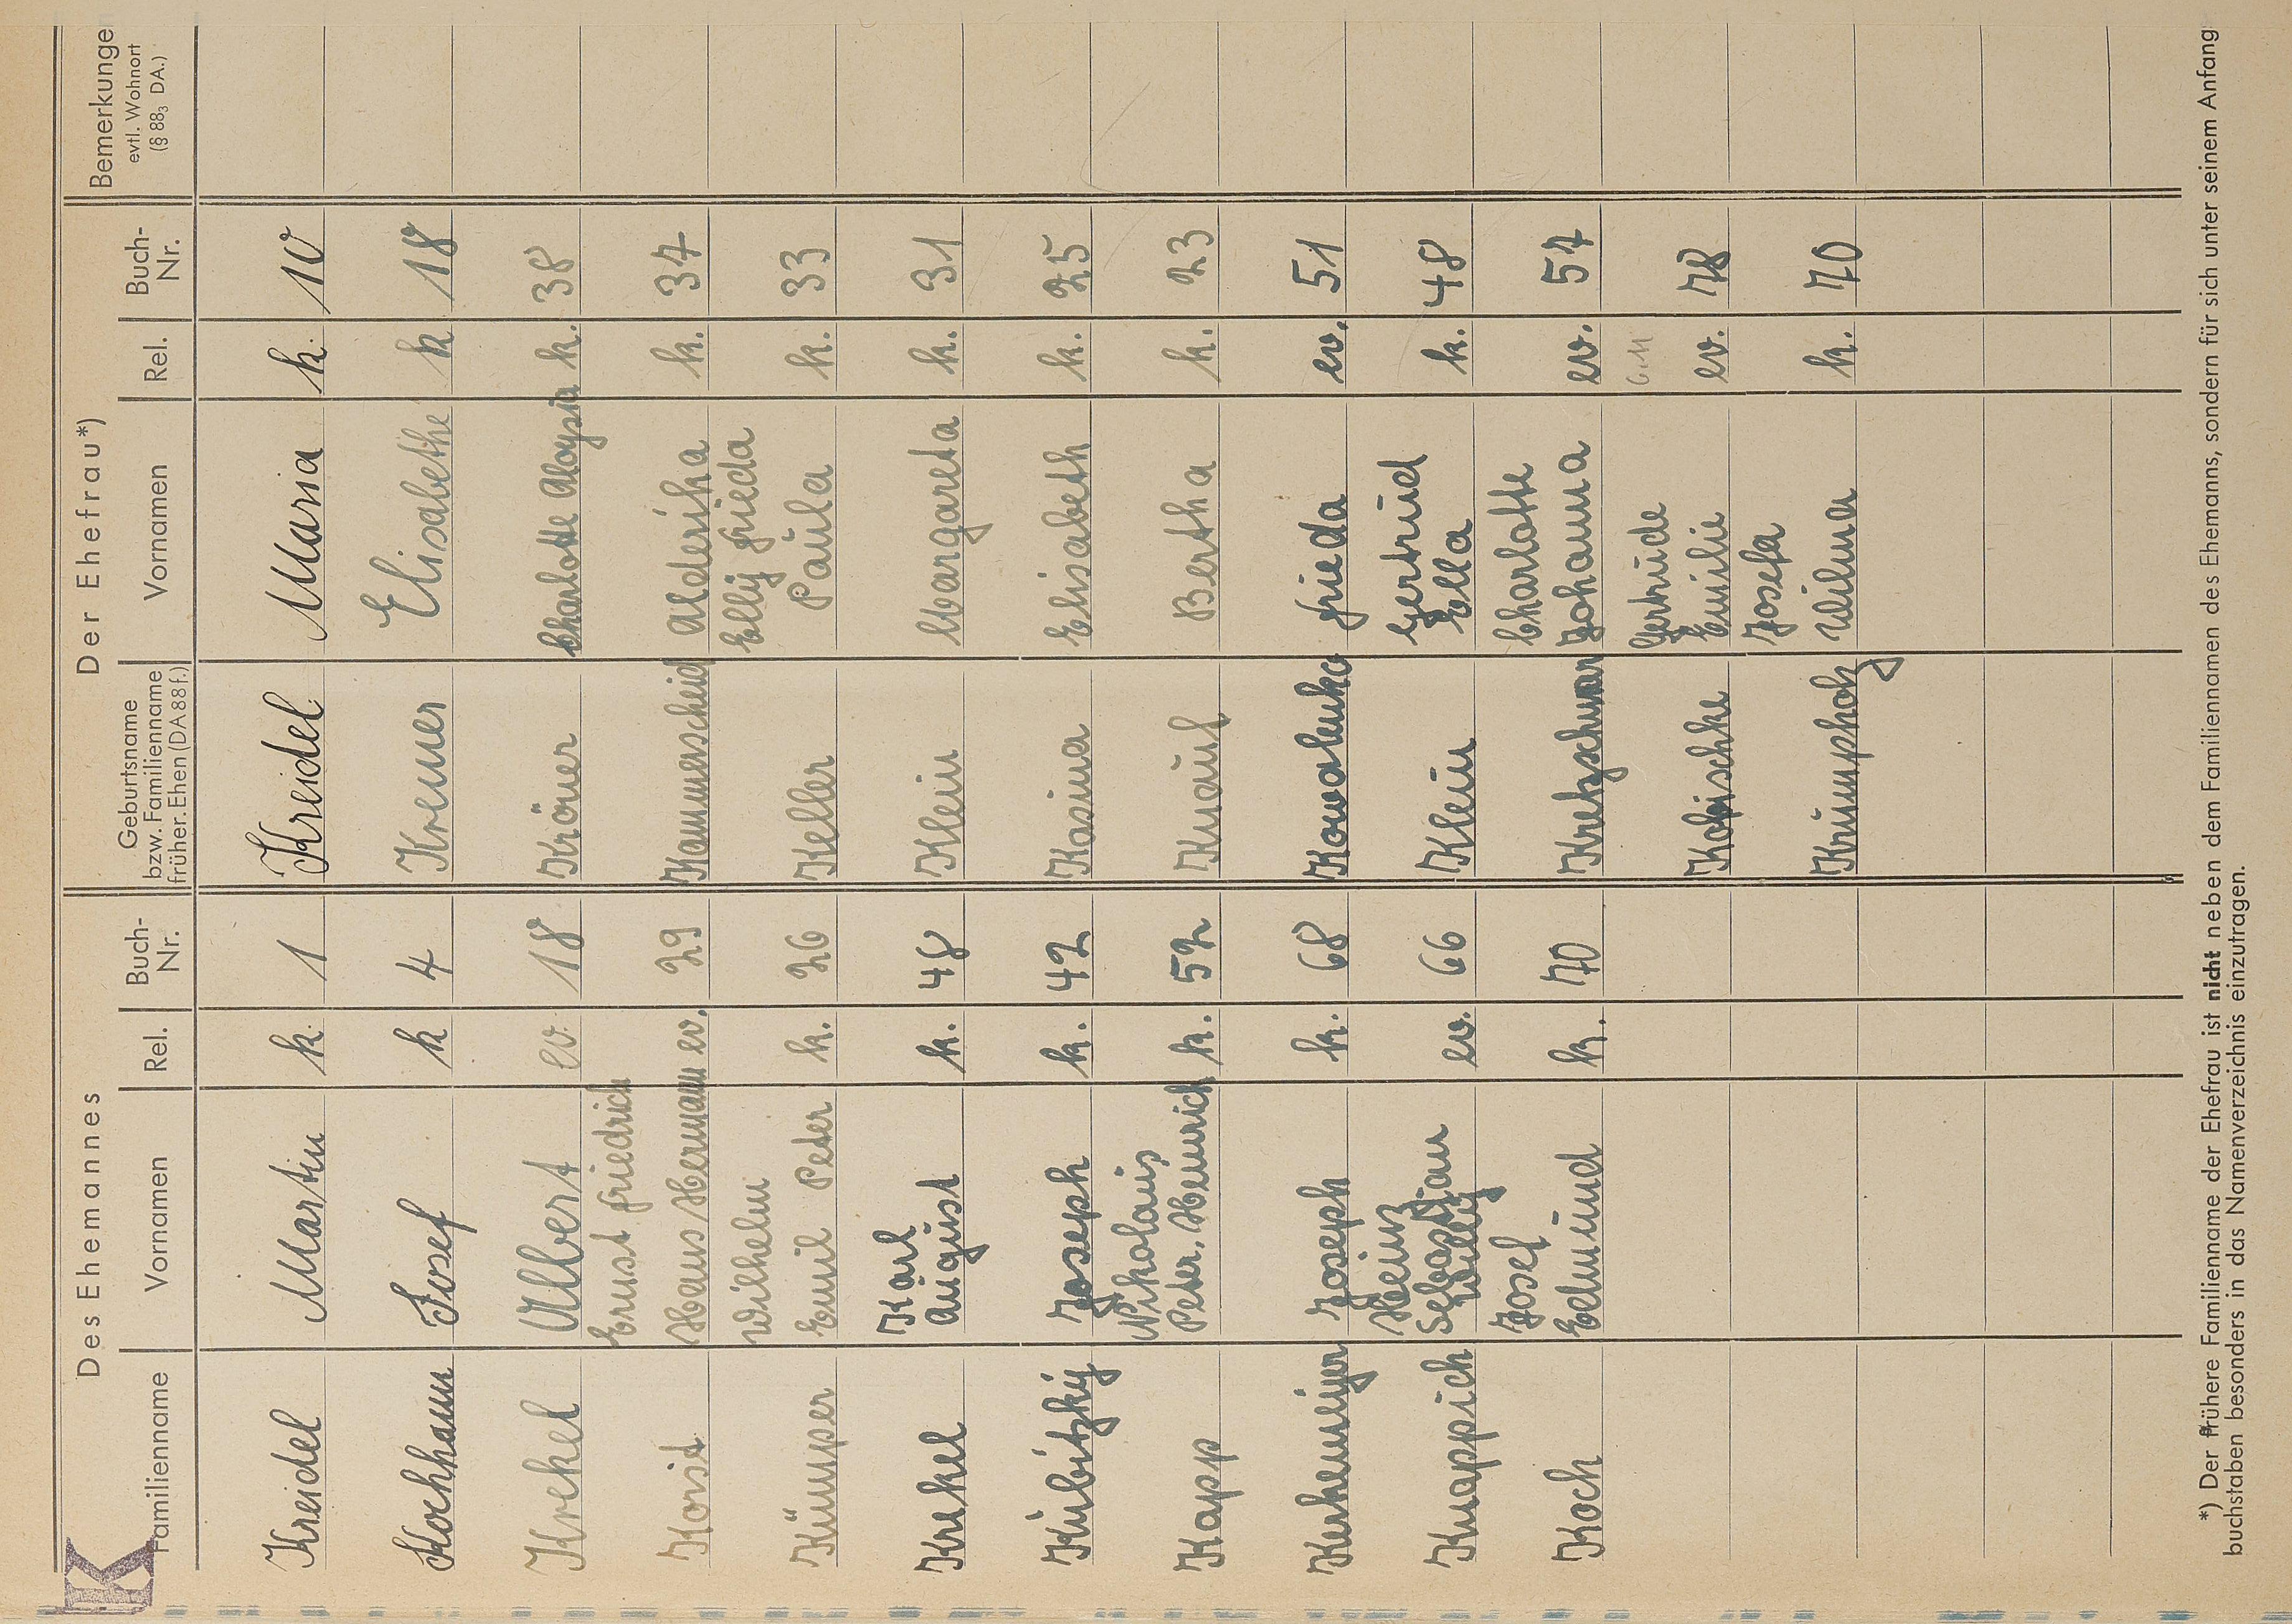 K
Des Ehemannes Der Ehefrau*)
Familienname Vornamen Rel. Buch-Nr. Geburtsname bzw. Familienname früher. Ehen (DA 88 f.) Vornamen Rel. Buch-Nr. Bemerkunge evtl. Wohnort (§ 88₃ DA.)
Kreidel Martin k. 1 Kreidel Maria k. 10
Kochhann Josef k 4 Kremer Elisabethe k 18
Krekel Albert ev. 18 Kröner Charlotte Aloysia k. 38
Ernst Friedrich
Korist Hans Hermann ev. 29 Kammerscheid Alderika k. 37
Wilhelm Elly Frieda
Kümper Emil Peter k. 26 Keller Paula k. 33
Karl
Krekel August k. 48 Klein Margareta k. 31
Kubitzky Joseph k. 42 Kosina Elisabeth k. 25
Nikolaus
Kapp Peter, Heinrich k. 52 Knauf Bertha k. 23
Joseph k. 68 Kowalenko Frieda ev. 51
Heinz Gertrud
Knappich Sebastian Willy ev. 66 Klein Ella k. 48
Josef Charlotte
Koch Edmund k. 70 Kretzschmar Johanna ev. 57
Gertrude
Kobischke Emilie ev. 78
Josefa
Krumpholz Wilma k. 70
*) Der frühere Familienname der Ehefrau ist nicht neben dem Familiennamen des Ehemanns, sondern für sich unter seinem Anfang
buchstaben besonders in das Namenverzeichnis einzutragen.